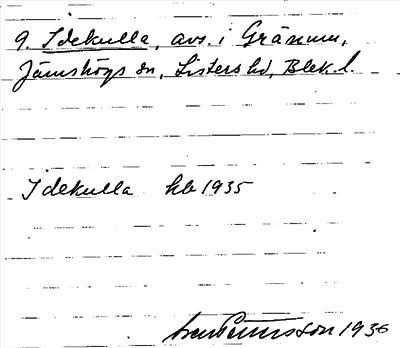 9. Idekulla, avs. i Gränum,
Jämshögs sn, Listers hd, Blek. l.
Idekulla hb 1935
1936